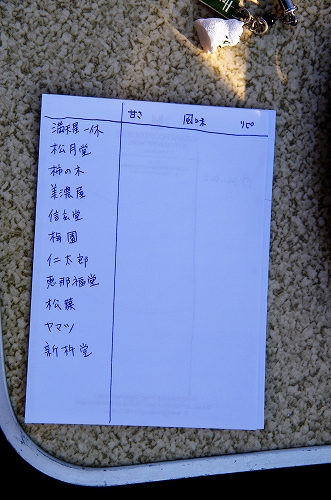 甘さ 風味 リピ
満天星一休
松月堂
柿の木
美濃屋
信玄堂
梅園
仁太郎
恵那福堂
松葉
ヤマツ
新杵堂